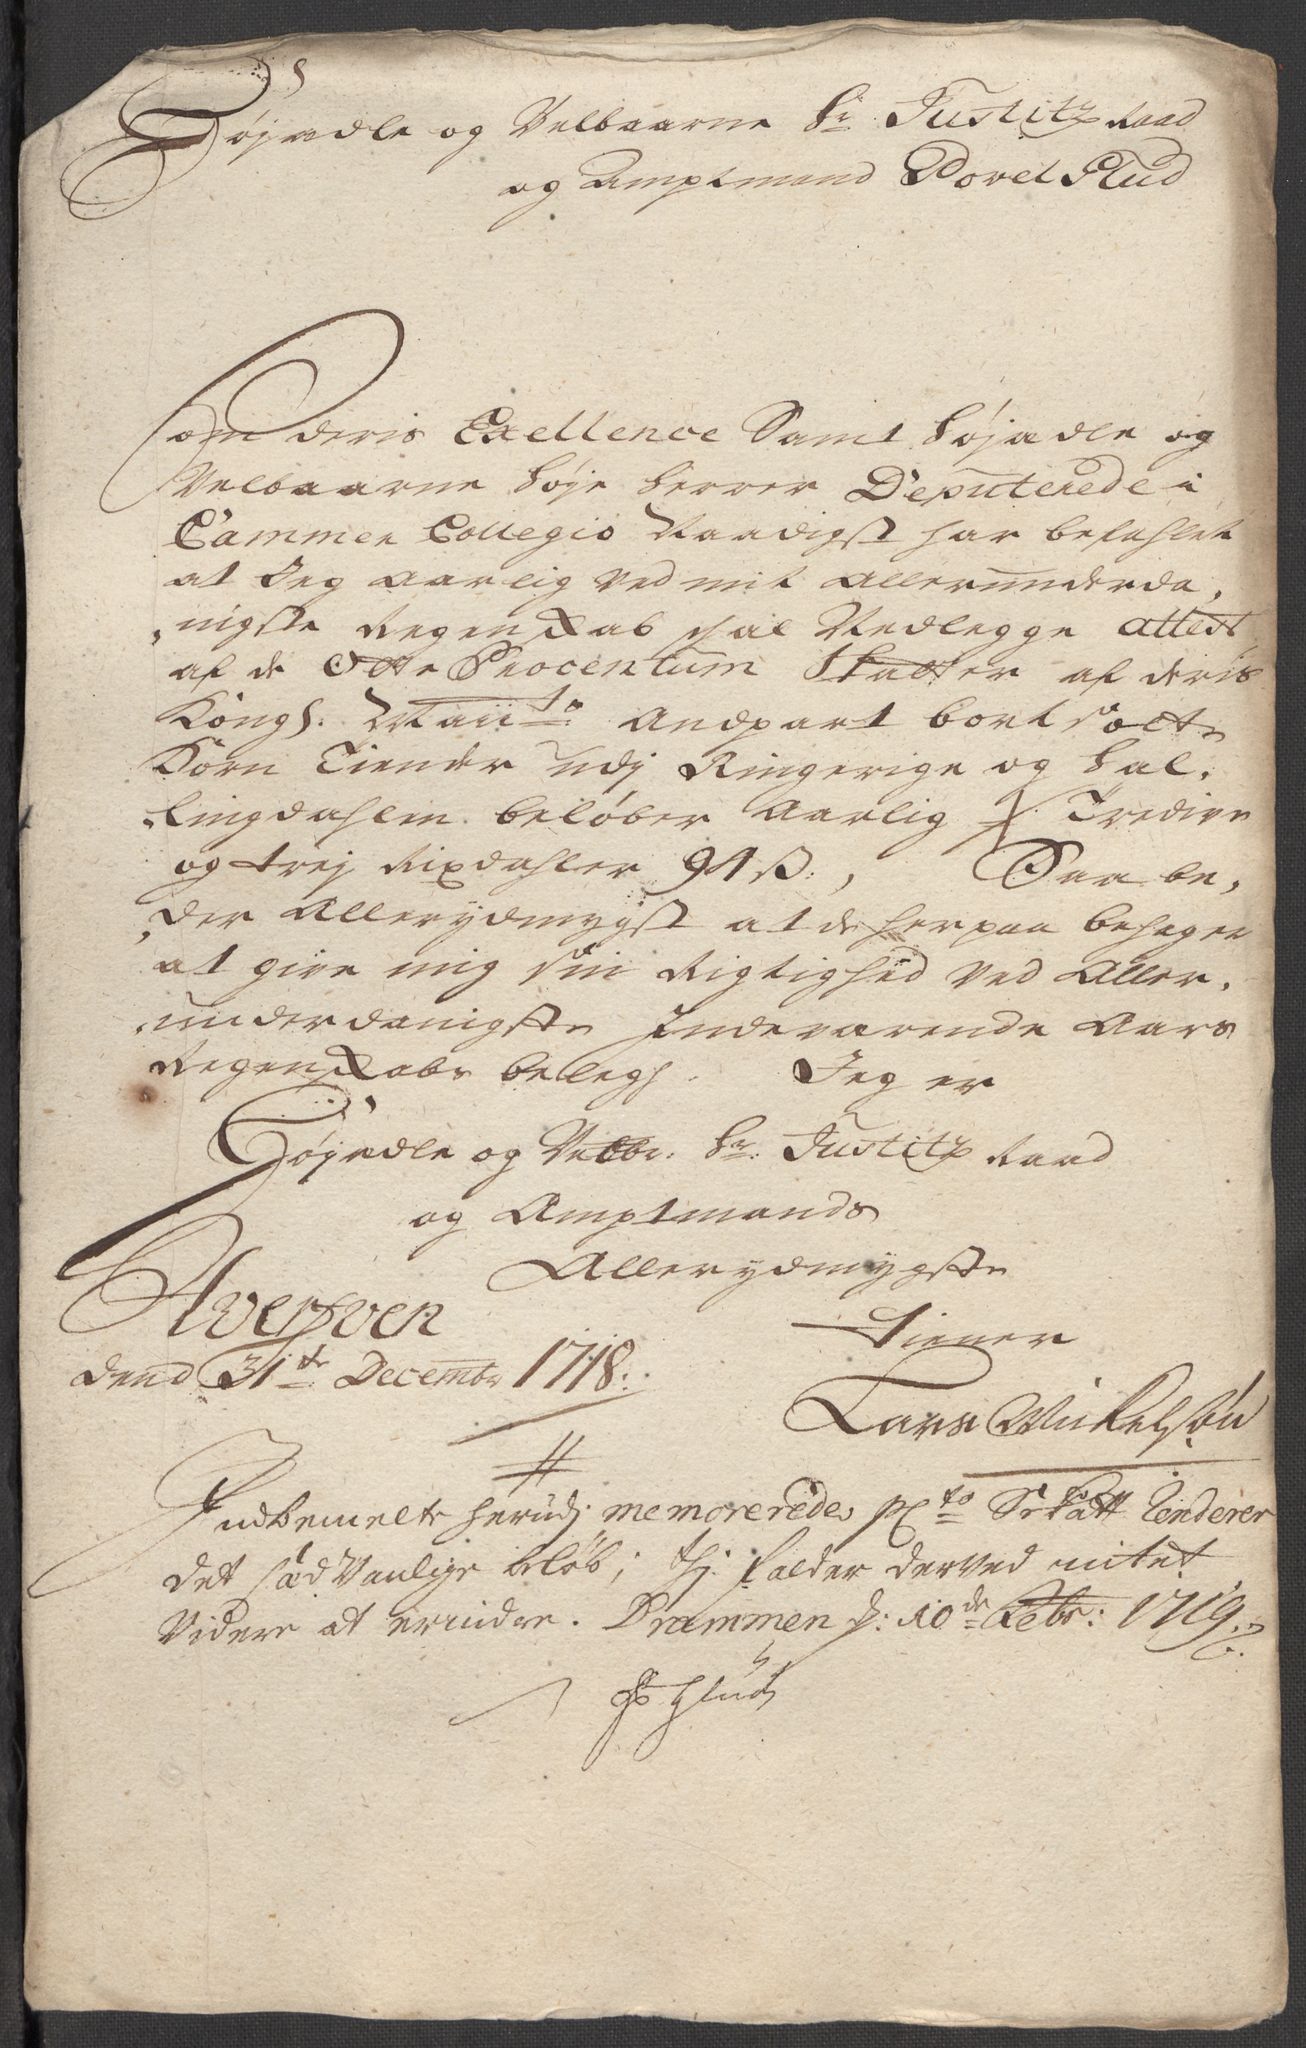 Højædle og Velbaarne Hr Justitz Raad
og Amptmand Povel Glud
Som deris Exellence Samt Højædle og
Velbaarne Høje Herrer Deputerede i
Cammer Collegio Naadigst har befahlet
at Jeg Aarlig ved mit Allerunderda,
,nigste Regenskab skal Vedlegge attest
af de Otte Procentum Skatter af deris
Kongl. Mayts Andpart bortsolte
Korn Tiender udj Ringerige og Hal,
,lingdahlen beløber Aarlig / Tredive
og trej Rixdahler 91 ß., Saa be,
,der Allerydmygst at de herpaa behager
at give mig sin Rigtighed ved Aller,
,underdanigste Indeværende Aars
Regenskabs belegh. Jeg er
Højædle og Velbr. Hr. Justitz Raad
og Amptmands
Allerydmygste
Tiener
dend 31te Decembr 1718.
Lars Mickelsøn
Indbemelte herudj memorerede pCto Skatt
det sædvanlige beløb; thj falder derved intet
Videre at erindre. Drammen d: 10de Febr: 1719.
P Glud